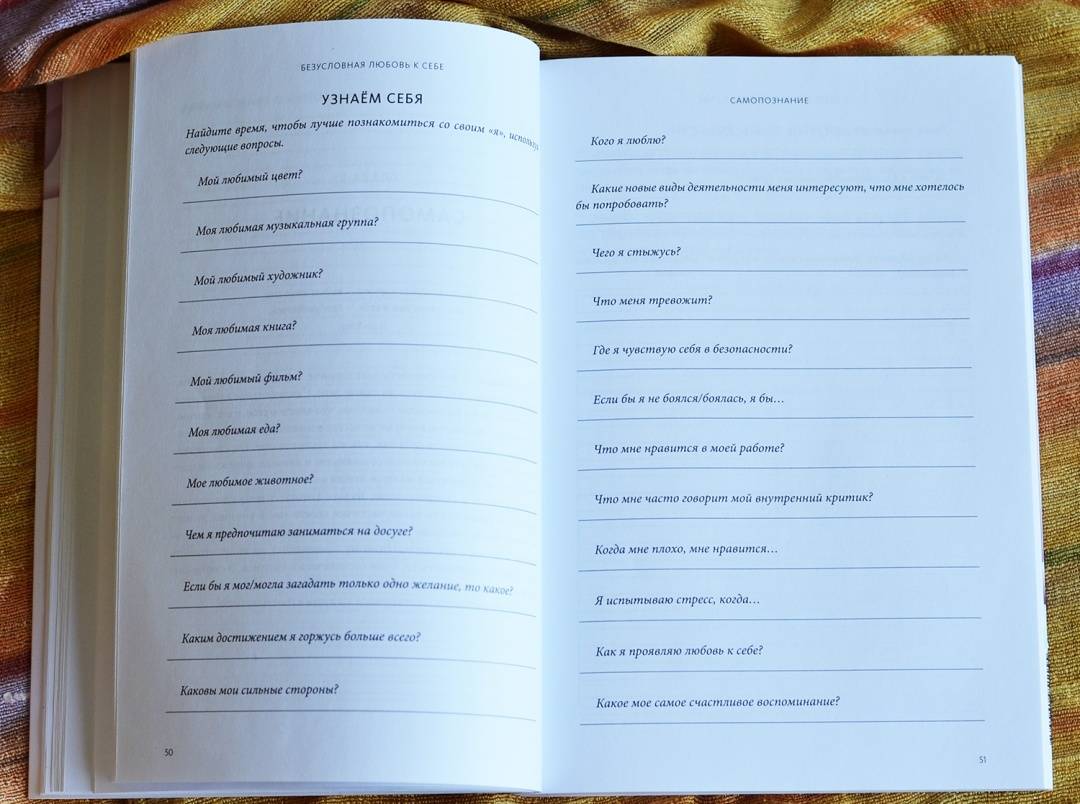 БЕЗУСЛОВНАЯ ЛЮБОВЬ К СЕБЕ
УЗНАЁМ СЕБЯ
Найдите время, чтобы лучше познакомиться со своим «я», используя
следующие вопросы.
Мой любимый цвет?
Моя любимая музыкальная группа?
Мой любимый художник?
Моя любимая книга?
Мой любимый фильм?
Моя любимая еда?
Мое любимое животное?
Чем я предпочитаю заниматься на досуге?
Если бы я мог/могла загадать только одно желание, то какое?
Каким достижением я горжусь больше всего?
Каковы мои сильные стороны?
50
САМОПОЗНАНИЕ
Кого я люблю?
Какие новые виды деятельности меня интересуют, что мне хотелось
бы попробовать?
Чего я стыжусь?
Что меня тревожит?
Где я чувствую себя в безопасности?
Если бы я не боялся/боялась, я бы…
Что мне нравится в моей работе?
Что мне часто говорит мой внутренний критик?
Когда мне плохо, мне нравится…
Я испытываю стресс, когда…
Как я проявляю любовь к себе?
Какое мое самое счастливое воспоминание?
51